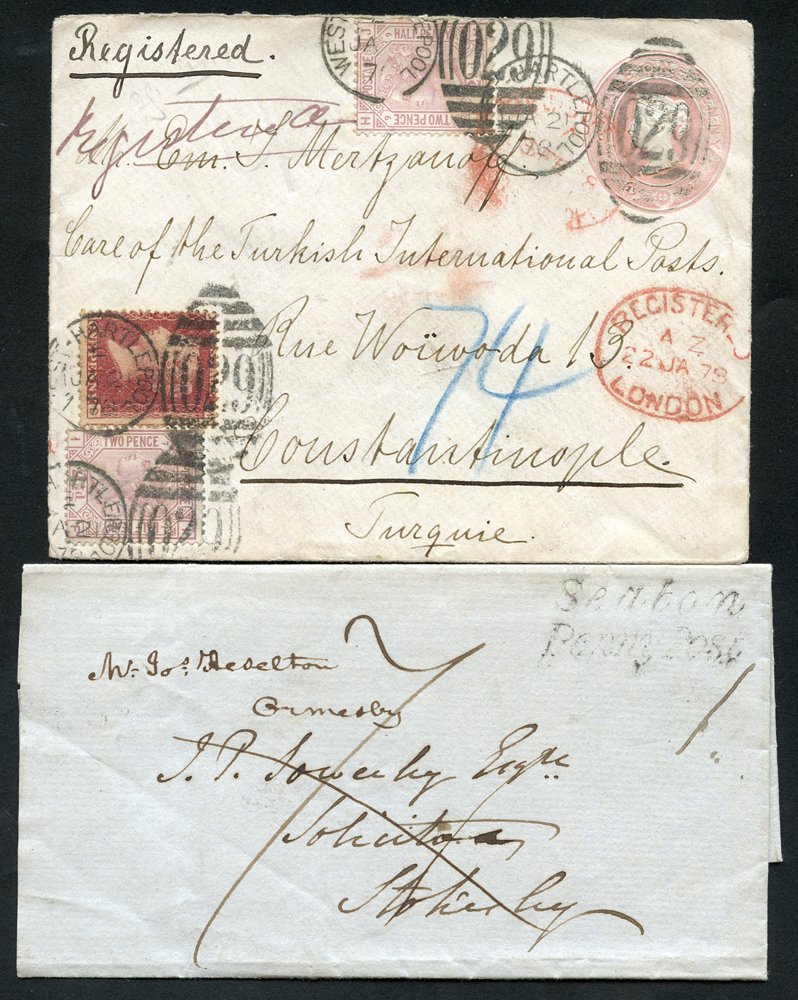 Registered.
Registered
Mr. Em. S. Mertzanoff
Care of the Turkish International Posts.
Rue Woïwoda 13.
Constantinople.
Turquie.
74
WEST HARTLEPOOL
JA
029
HALFPENNY
TWO PENCE
H
HARTLEPOOL
JA 21
78
029
REGISTERED
A Z
22 JA 78
LONDON
HARTLEPOOL
029
TWO PENCE
HARTLEPOOL
029
Seaton
Penny Post
Mr. Jos. Heselton
Ormesby
J. P. Sowerby Esqre
Solicitor
Stokesley